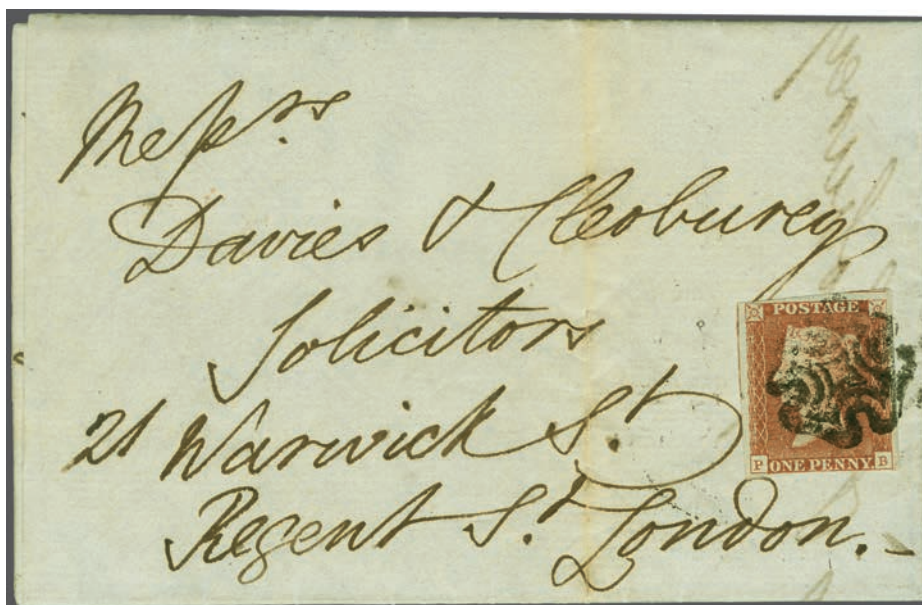 Messrs
Davies & Cleobury
Solicitors
21 Warwick St.
Regent St. London.
POSTAGE
P ONE PENNY B